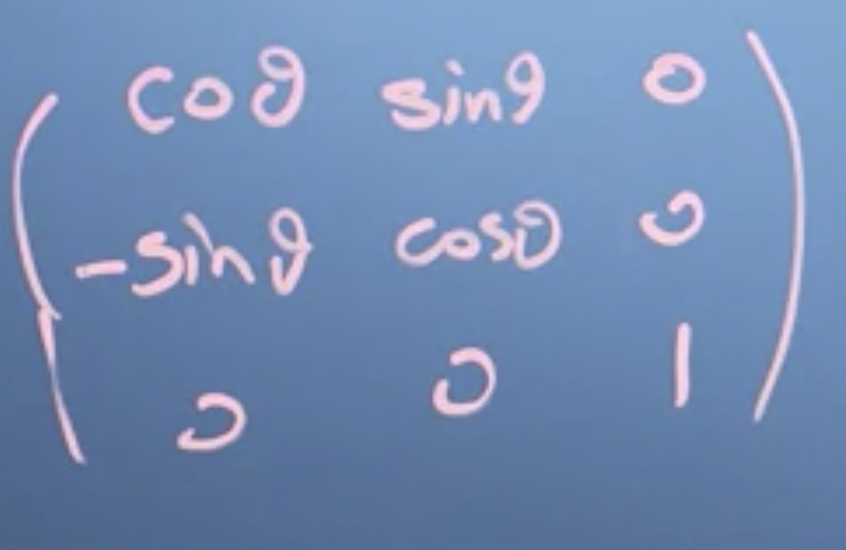 coϑ sinϑ 0
-sinϑ cosϑ 0
0 0 1